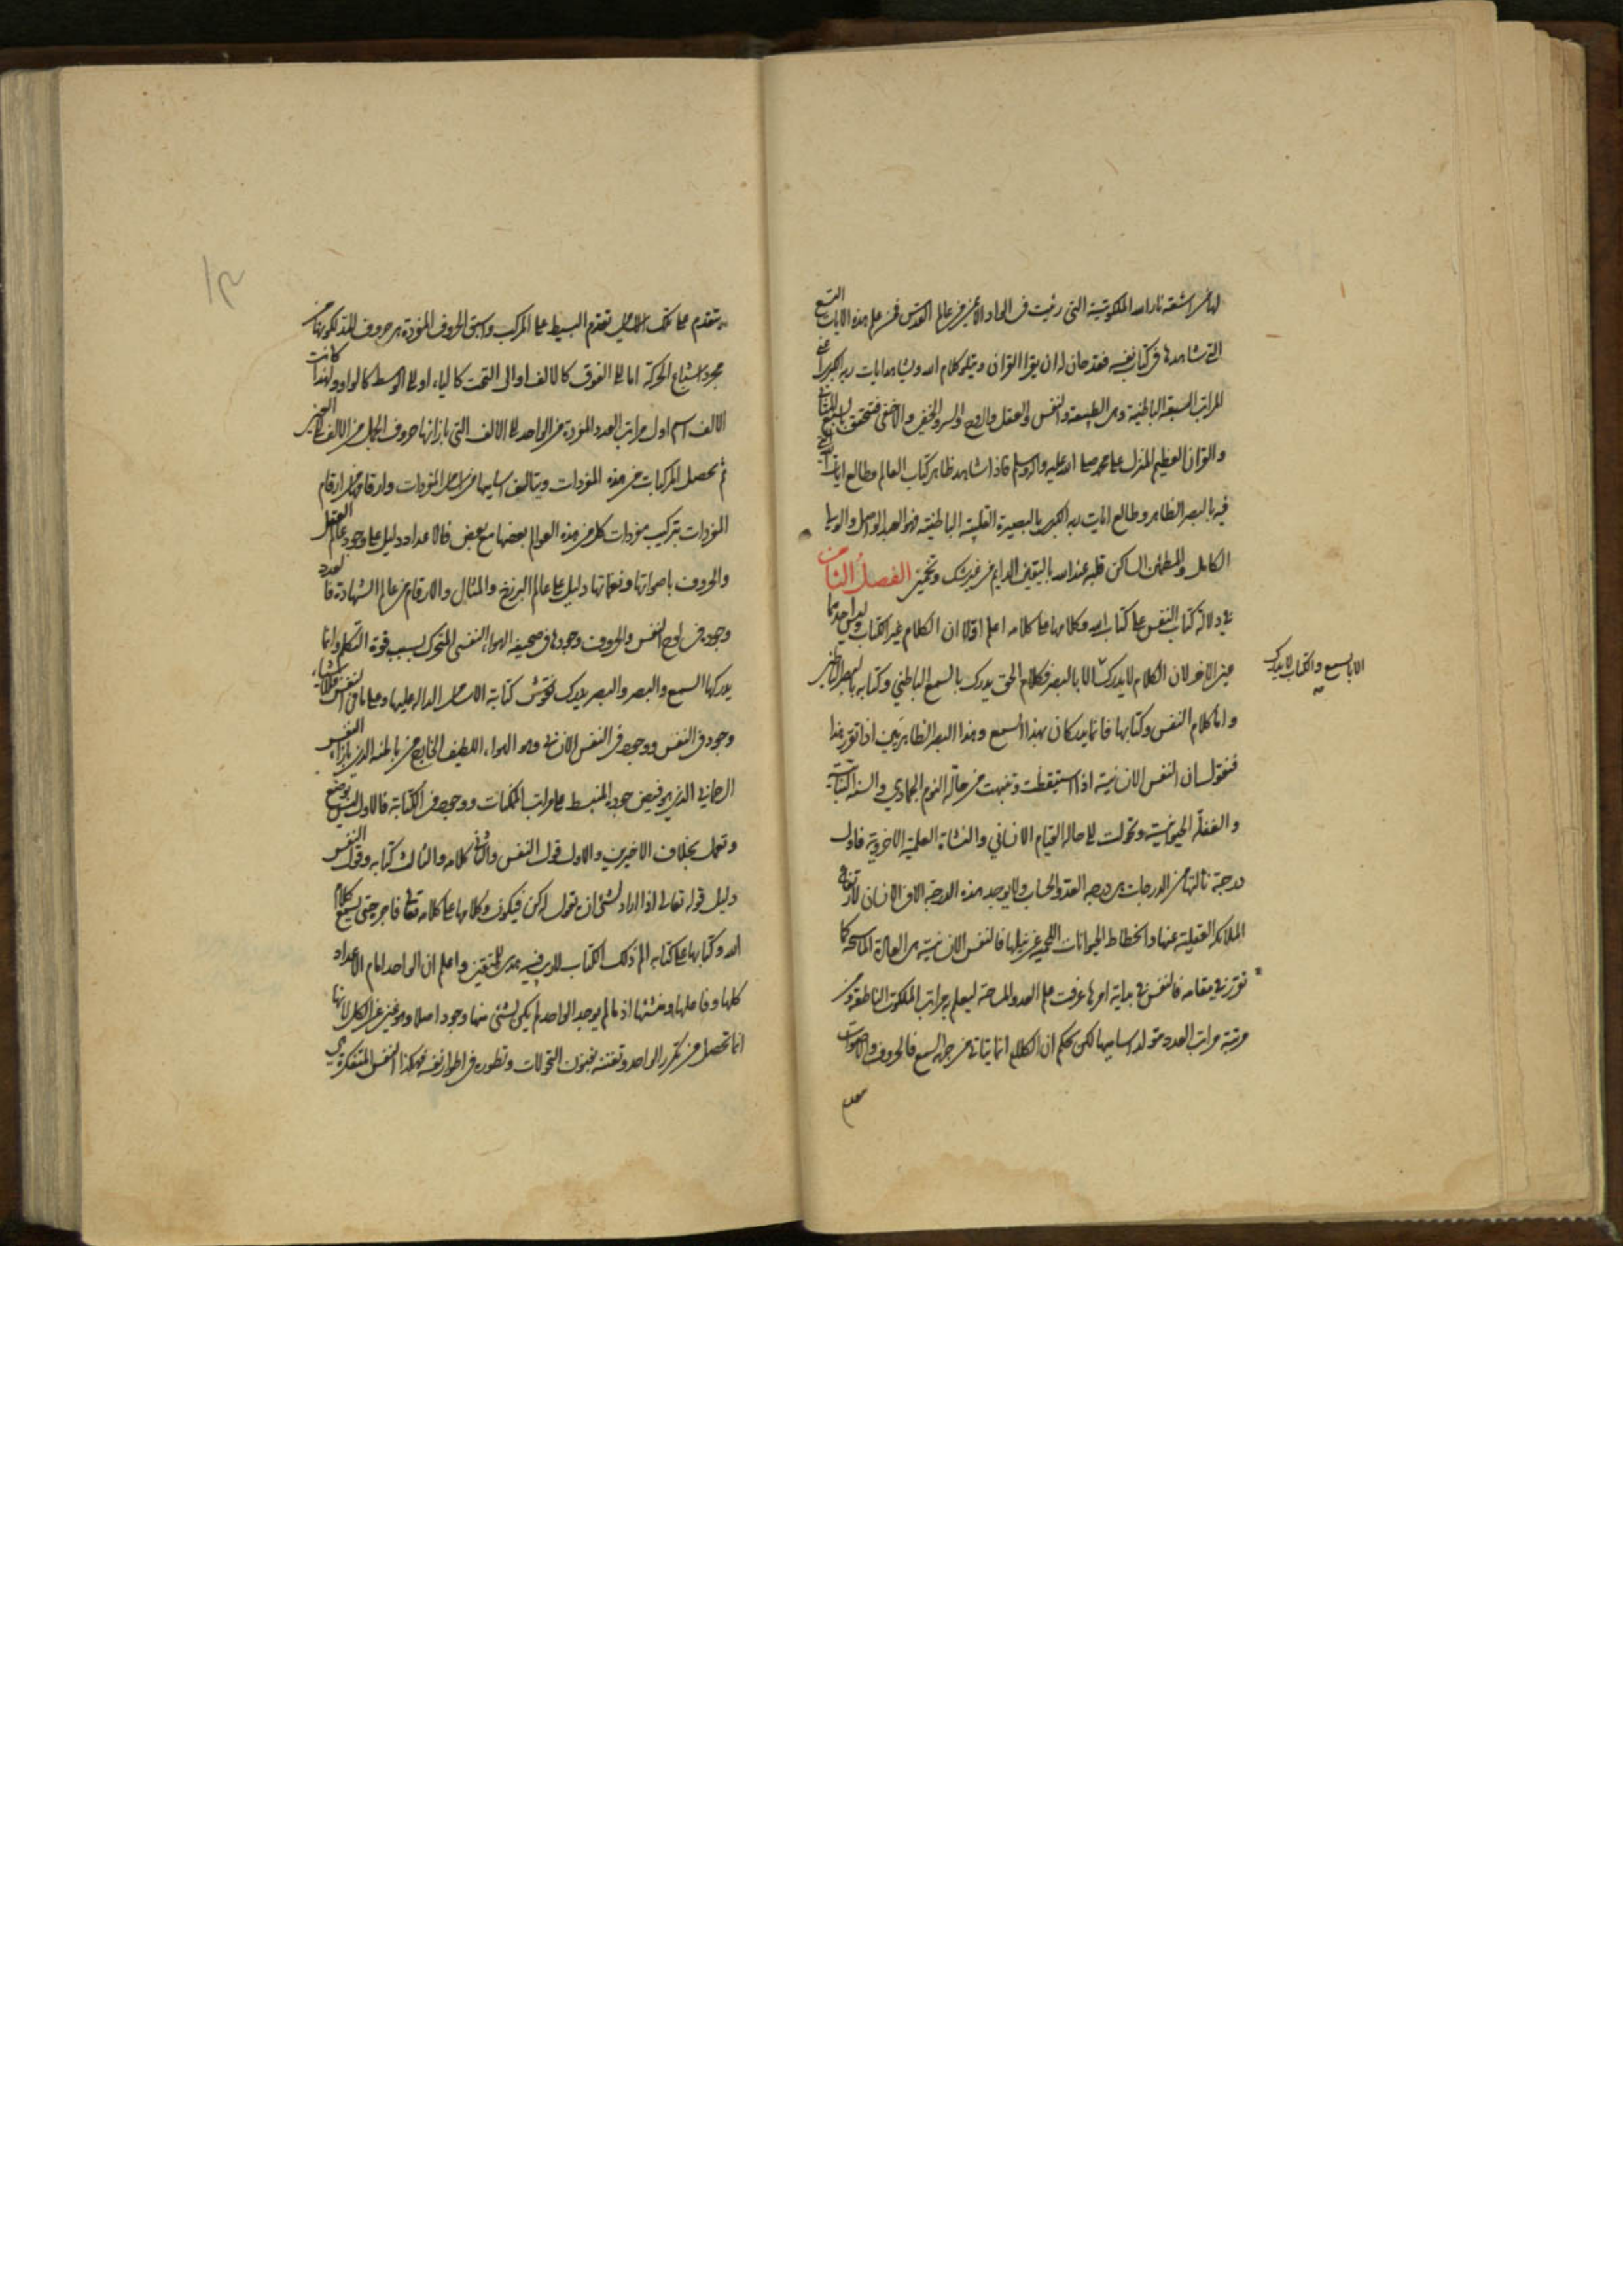 لها من اشعة نار الله الملكوتية التي رئيت في الواد الأيمن من عالم القدس فمن علم هذه الايات التسع
التي شاهدها في كتاب نفسه فقد حان له ان يقرا القران ويتلو كلام الله ويشاهد ايات ربه الكبرى
المراتب السبعة الباطنية وهى الطبيعة والنفس والعقل والروح والسر والخفى والاخفى فتحقق بالسبع المثانى
والقران العظيم المنزل على محمد صلى الله عليه واله وسلم فاذا شاهد ظاهر كتاب العالم وطالع ايات
فيه بالبصر الظاهر وطالع ايات ربه الكبرى بالبصيرة القلبية الباطنية فهو العبد الواصل والولى
الكامل والمطمئن الساكن قلبه عند الله باليقين الدايم من غير شك وتخمين الفصل الثامن
في دلالة كتاب النفس على كتاب الله وكلامها على كلامه اعلم اولا ان الكلام غير الكتاب وليس احدهما
عين الاخر لان الكلام لا يدرك الا بالبصر فكلام الحق يدرك بالسمع الباطني وكتابه بالبصر الباطني
الا بالسمع والكتاب لا يدرك
واما كلام النفس وكتابها فانما يدركان بهذا السمع وهذا البصر الظاهريين اذا تقرر هذا
فنقول ان النفس الانسانية اذا استيقظت وتنبهت من حالة النوم الجمادي والسنة النباتية
والغفلة الحيوانية وتحولت الى حالة القيام الانساني والنشاة العلمية الاخروية فاول
درجة نالتها من الدرجات هى درجة العد والحساب ولا يوجد هذه الدرجة الا في الانسان لارتفاع
الملائكة العقلية عنها وانخطاط الحيوانات اللحمية عن نيلها فالنفس الانسانية هى العادة الماسحة كما
تقرر في مقامه فالنفس في بداية امرها عرفت علم العدد والمساحة ليعلم به مراتب الملكوت الناطقة ومن
مرتبة مراتب العدد تتولد اساميها لكن بحكم ان الكلام انما يتاتى من جهة السمع فالحروف والاصوات
يتقدم على تلك تقدم البسيط على المركب واسبق الحروف المفردة هى حروف المد لكونها من
مجرد اشباع الحركة اما الى الفوق كالالف او الى التحت كالياء او الى الوسط كالواو ولهذا كانت
الالف اسم اول مراتب العدد المفردة من الواحد الى الالف التى بازائها حروف الجمل من الالف الى الغين
ثم يحصل المركبات من هذه المفردات ويتالف اساميها من اسامى المفردات وارقامها من ارقام
المفردات بتركيب مفردات كل من هذه العوالم بعضها مع بعض فالاعداد دليل على وجود عالم العقل
والحروف باصواتها ونغماتها دليل على عالم البرزخ والمثال والارقام من عالم الشهادة فالعدد
وجوده في لوح النفس والحروف وجودها في صحيفة الهواء النفسى المتحرك بسبب قوة التكلم وانما
يدركها السمع والبصر والبصر يدرك نقوش كتابة الاسامى الدالة عليها وعلى ما فى النفس فللاشياء
وجود فى النفس ووجود فى النفس الانسانى وهو الهواء اللطيف الخارج من باطنه الذى بازاء النفس
الرحمانى الذى هو فيض وجوده المنبسط على مراتب الممكنات ووجود فى الكتابة فالاول ليس بوضع
وتعمل بخلاف الاخيرين والاول قول النفس والثانى كلامه والثالث كتابه وقول النفس
دليل قوله تعالى اذا اراد لشئ ان يقول له كن فيكون وكلامها على كلامه تعالى فاجره حتى يسمع كلام
الله وكتابها على كتابه الم ذلك الكتاب لا ريب فيه هدى للمتقين واعلم ان الواحد امام الاعداد
كلها وفاعلها ومنشئها اذ ما لم يوجد الواحد لم يكن لشئ منها وجود اصلا وهو غير عن الكل لانها
انما تحصل من تكرر الواحد وتفننه بفنون التحولات وتطوره فى اطوار نفسه فهكذا النفس المتفكرة